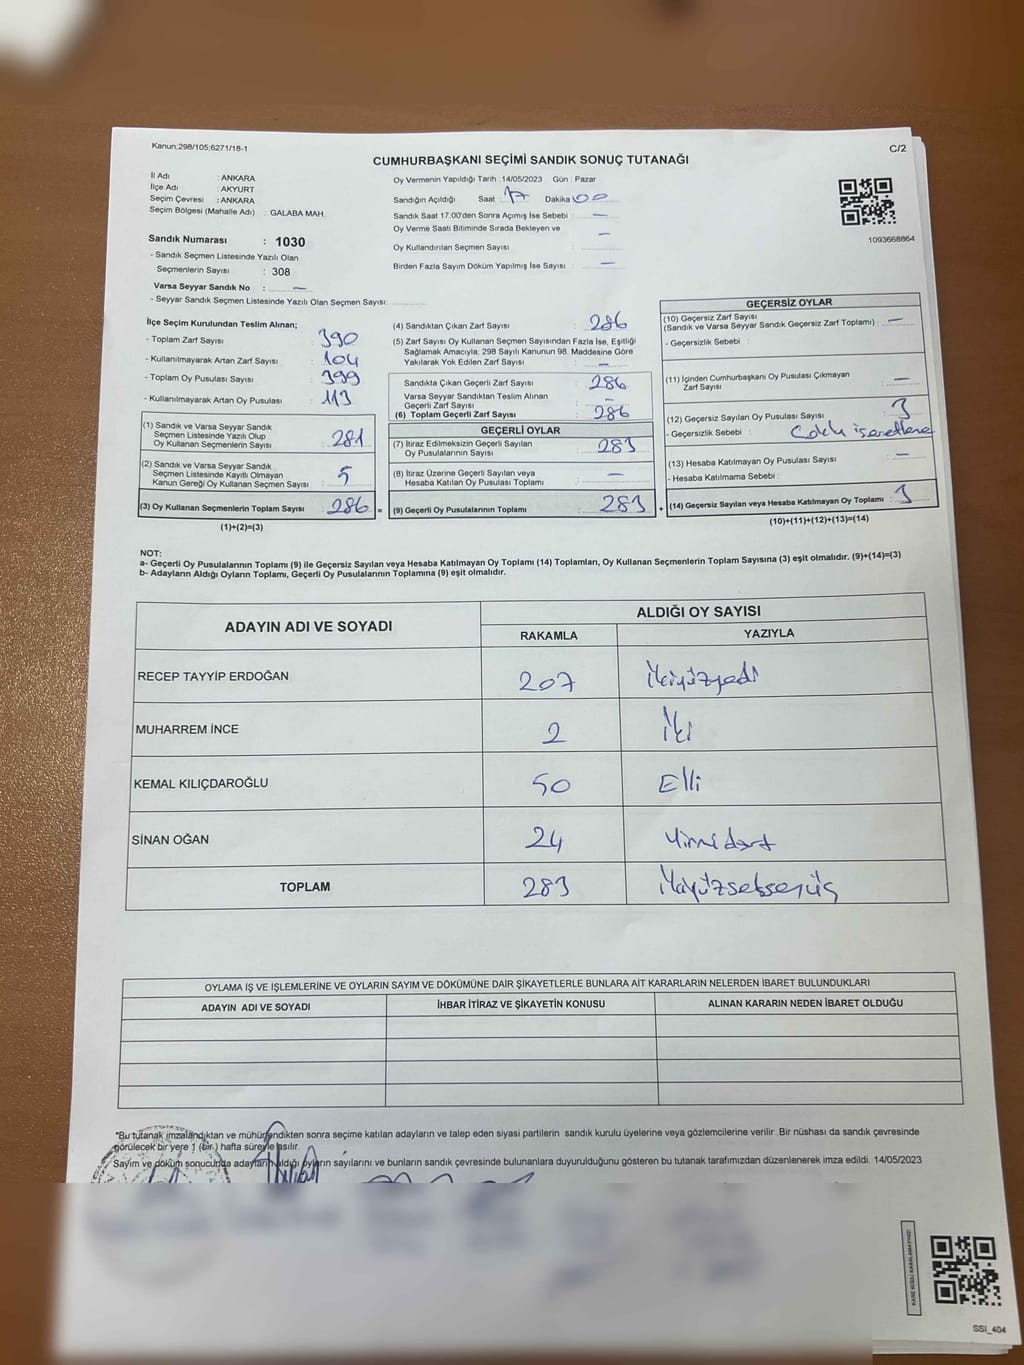 Kanun;298/105;6271/18-1
C/2
CUMHURBAŞKANI SEÇİMİ SANDIK SONUÇ TUTANAĞI
İl Adı : ANKARA
İlçe Adı : AKYURT
Seçim Çevresi : ANKARA
Seçim Bölgesi (Mahalle Adı) : GALABA MAH.
Sandık Numarası : 1030
- Sandık Seçmen Listesinde Yazılı Olan
Seçmenlerin Sayısı : 308
Varsa Seyyar Sandık No : —
- Seyyar Sandık Seçmen Listesinde Yazılı Olan Seçmen Sayısı:
Oy Vermenin Yapıldığı Tarih : 14/05/2023 Gün : Pazar
Sandığın Açıldığı Saat : 17 Dakika : 00
Sandık Saat 17.00'den Sonra Açımış İse Sebebi : —
Oy Verme Saati Bitiminde Sırada Bekleyen ve
Oy Kullandırılan Seçmen Sayısı : —
Birden Fazla Sayım Döküm Yapılmış İse Sayısı : —
1093668864
İlçe Seçim Kurulundan Teslim Alınan;
- Toplam Zarf Sayısı : 390
- Kullanılmayarak Artan Zarf Sayısı : 104
- Toplam Oy Pusulası Sayısı : 399
- Kullanılmayarak Artan Oy Pusulası : 113
(1) Sandık ve Varsa Seyyar Sandık
Seçmen Listesinde Yazılı Olup
Oy Kullanan Seçmenlerin Sayısı : 281
(2) Sandık ve Varsa Seyyar Sandık
Seçmen Listesinde Kayıtlı Olmayan
Kanun Gereği Oy Kullanan Seçmen Sayısı : 5
(3) Oy Kullanan Seçmenlerin Toplam Sayısı : 286 =
(1)+(2)=(3)
(4) Sandıktan Çıkan Zarf Sayısı : 286
(5) Zarf Sayısı Oy Kullanan Seçmen Sayısından Fazla İse, Eşitliği
Sağlamak Amacıyla; 298 Sayılı Kanunun 98. Maddesine Göre
Yakılarak Yok Edilen Zarf Sayısı : —
Sandıkta Çıkan Geçerli Zarf Sayısı : 286
Varsa Seyyar Sandıktan Teslim Alınan
Geçerli Zarf Sayısı : —
(6) Toplam Geçerli Zarf Sayısı : 286
GEÇERLİ OYLAR
(7) İtiraz Edilmeksizin Geçerli Sayılan
Oy Pusulalarının Sayısı : 283
(8) İtiraz Üzerine Geçerli Sayılan veya
Hesaba Katılan Oy Pusulası Toplamı : —
(9) Geçerli Oy Pusulalarının Toplamı : 283 +
GEÇERSİZ OYLAR
(10) Geçersiz Zarf Sayısı
(Sandık ve Varsa Seyyar Sandık Geçersiz Zarf Toplamı) : —
- Geçersizlik Sebebi :
(11) İçinden Cumhurbaşkanı Oy Pusulası Çıkmayan
Zarf Sayısı : —
(12) Geçersiz Sayılan Oy Pusulası Sayısı : 3
- Geçersizlik Sebebi :
(13) Hesaba Katılmayan Oy Pusulası Sayısı : —
- Hesaba Katılmama Sebebi :
(14) Geçersiz Sayılan veya Hesaba Katılmayan Oy Toplamı : 3
(10)+(11)+(12)+(13)=(14)
NOT:
a- Geçerli Oy Pusulalarının Toplamı (9) ile Geçersiz Sayılan veya Hesaba Katılmayan Oy Toplamı (14) Toplamları, Oy Kullanan Seçmenlerin Toplam Sayısına (3) eşit olmalıdır. (9)+(14)=(3)
b- Adayların Aldığı Oyların Toplamı, Geçerli Oy Pusulalarının Toplamına (9) eşit olmalıdır.
ADAYIN ADI VE SOYADI
ALDIĞI OY SAYISI
RAKAMLA YAZIYLA
RECEP TAYYİP ERDOĞAN 207 İkiyüzyedi
MUHARREM İNCE 2 İki
KEMAL KILIÇDAROĞLU 50 Elli
SİNAN OĞAN 24 Yirmidört
TOPLAM 283 İkiyüzseksenüç
OYLAMA İŞ VE İŞLEMLERİNE VE OYLARIN SAYIM VE DÖKÜMÜNE DAİR ŞİKAYETLERLE BUNLARA AİT KARARLARIN NELERDEN İBARET BULUNDUKLARI
ADAYIN ADI VE SOYADI İHBAR İTİRAZ VE ŞİKAYETİN KONUSU ALINAN KARARIN NEDEN İBARET OLDUĞU
"Bu tutanak imzalandıktan ve mühürlendikten sonra seçime katılan adayların ve talep eden siyasi partilerin sandık kurulu üyelerine veya gözlemcilerine verilir .Bir nüshası da sandık çevresinde
görülecek bir yere 1 (bir ) hafta süreyle asılır.
Sayım ve döküm sonucunda adayların aldığı oyların sayılarını ve bunların sandık çevresinde bulunanlara duyurulduğunu gösteren bu tutanak tarafımızdan düzenlenerek imza edildi. 14/05/2023
SSI_404